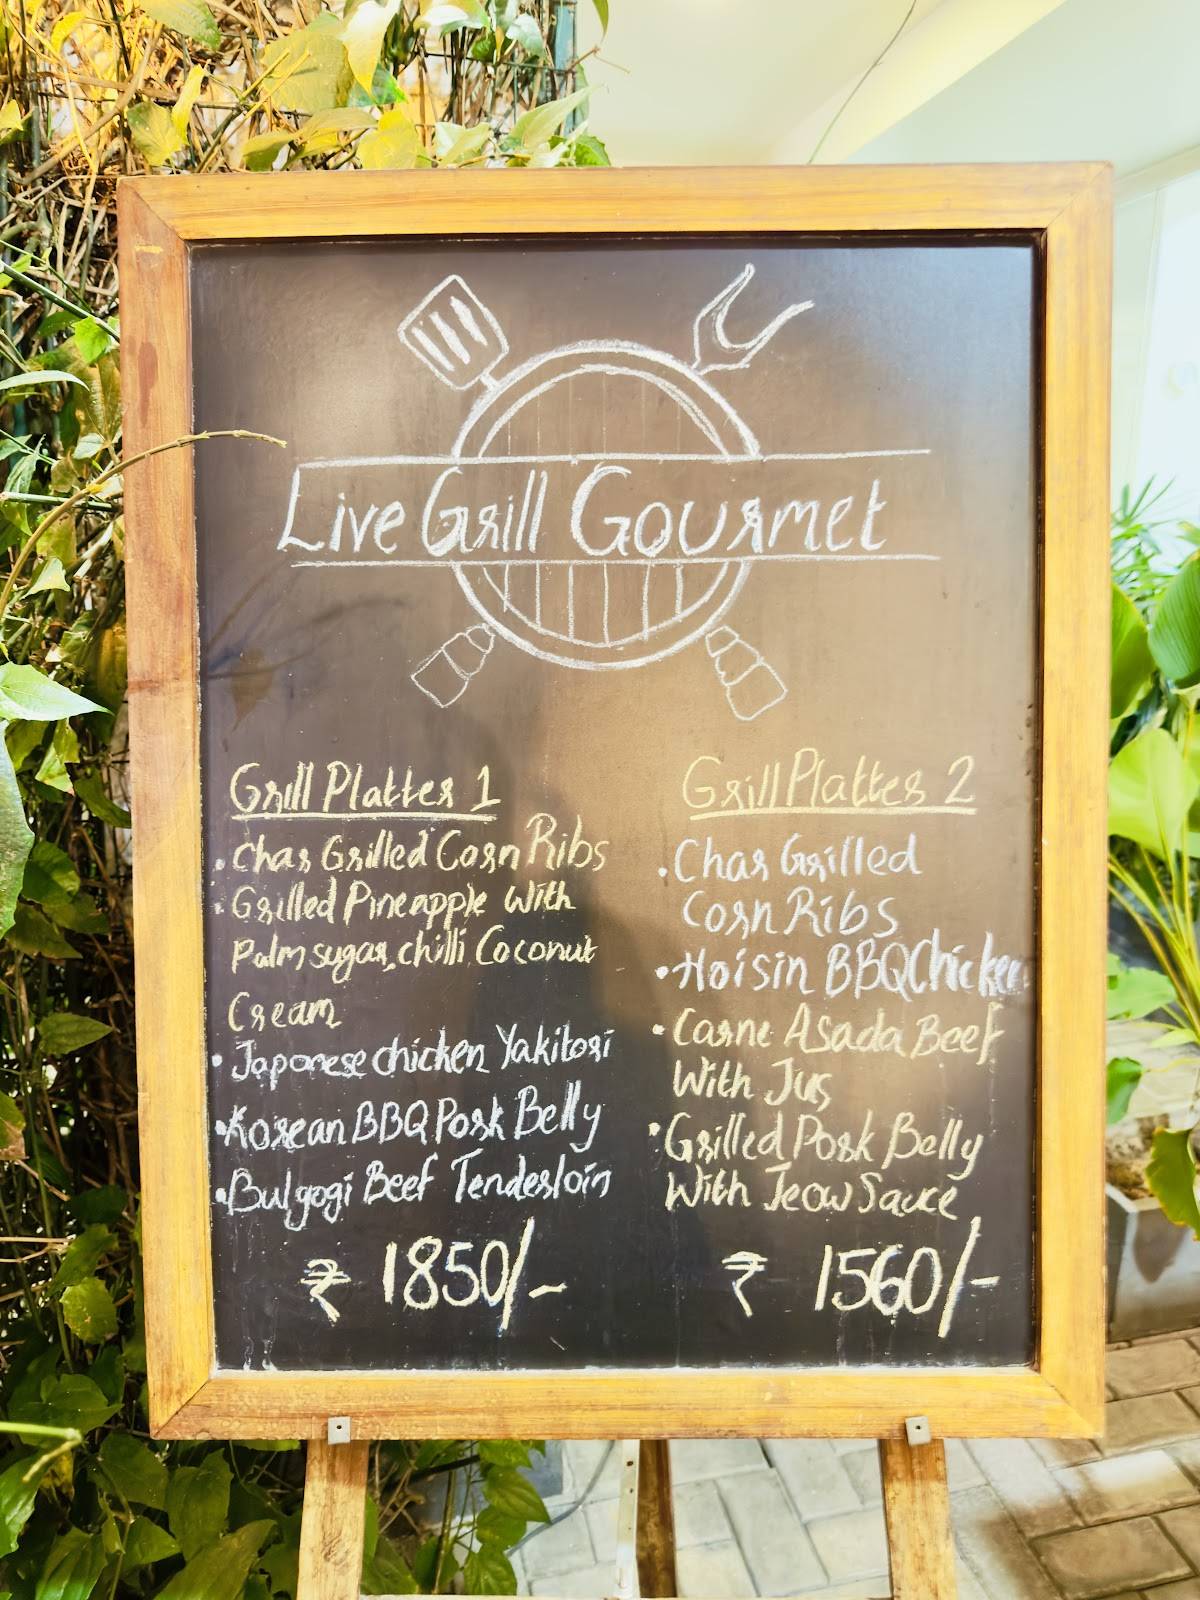 Live Grill Gourmet
Grill Platter 1
• Char Grilled Corn Ribs
• Grilled Pineapple With
Palm sugar, chilli Coconut
Cream
• Japanese chicken Yakitori
• Korean BBQ Pork Belly
• Bulgogi Beef Tenderloin
₹ 1850/-
Grill Platter 2
• Char Grilled
Corn Ribs
• Hoisin BBQ Chicken
• Carne Asada Beef
With Jus
• Grilled Pork Belly
With Jeow Sauce
₹ 1560/-